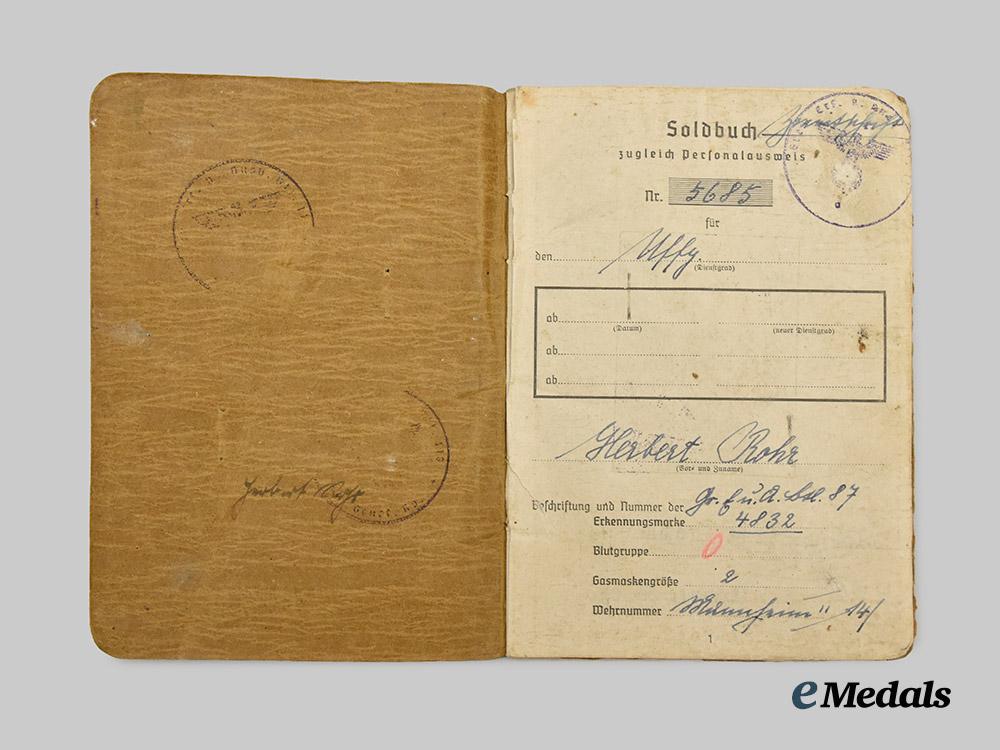 Herbert
Soldbuch
zugleich Personalausweis
Nr. 5685
für
den Uffz.
(Dienstgrad)
ab
(Datum) (neuer Dienstgrad)
ab
ab
Herbert Rohr
(Vor- und Zuname)
Beschriftung und Nummer der Gr. E. u. A. Btl. 87
Erkennungsmarke 4832
Blutgruppe 0
Gasmaskengröße 2
Wehrnummer Mannheim II 14/
1
eMedals